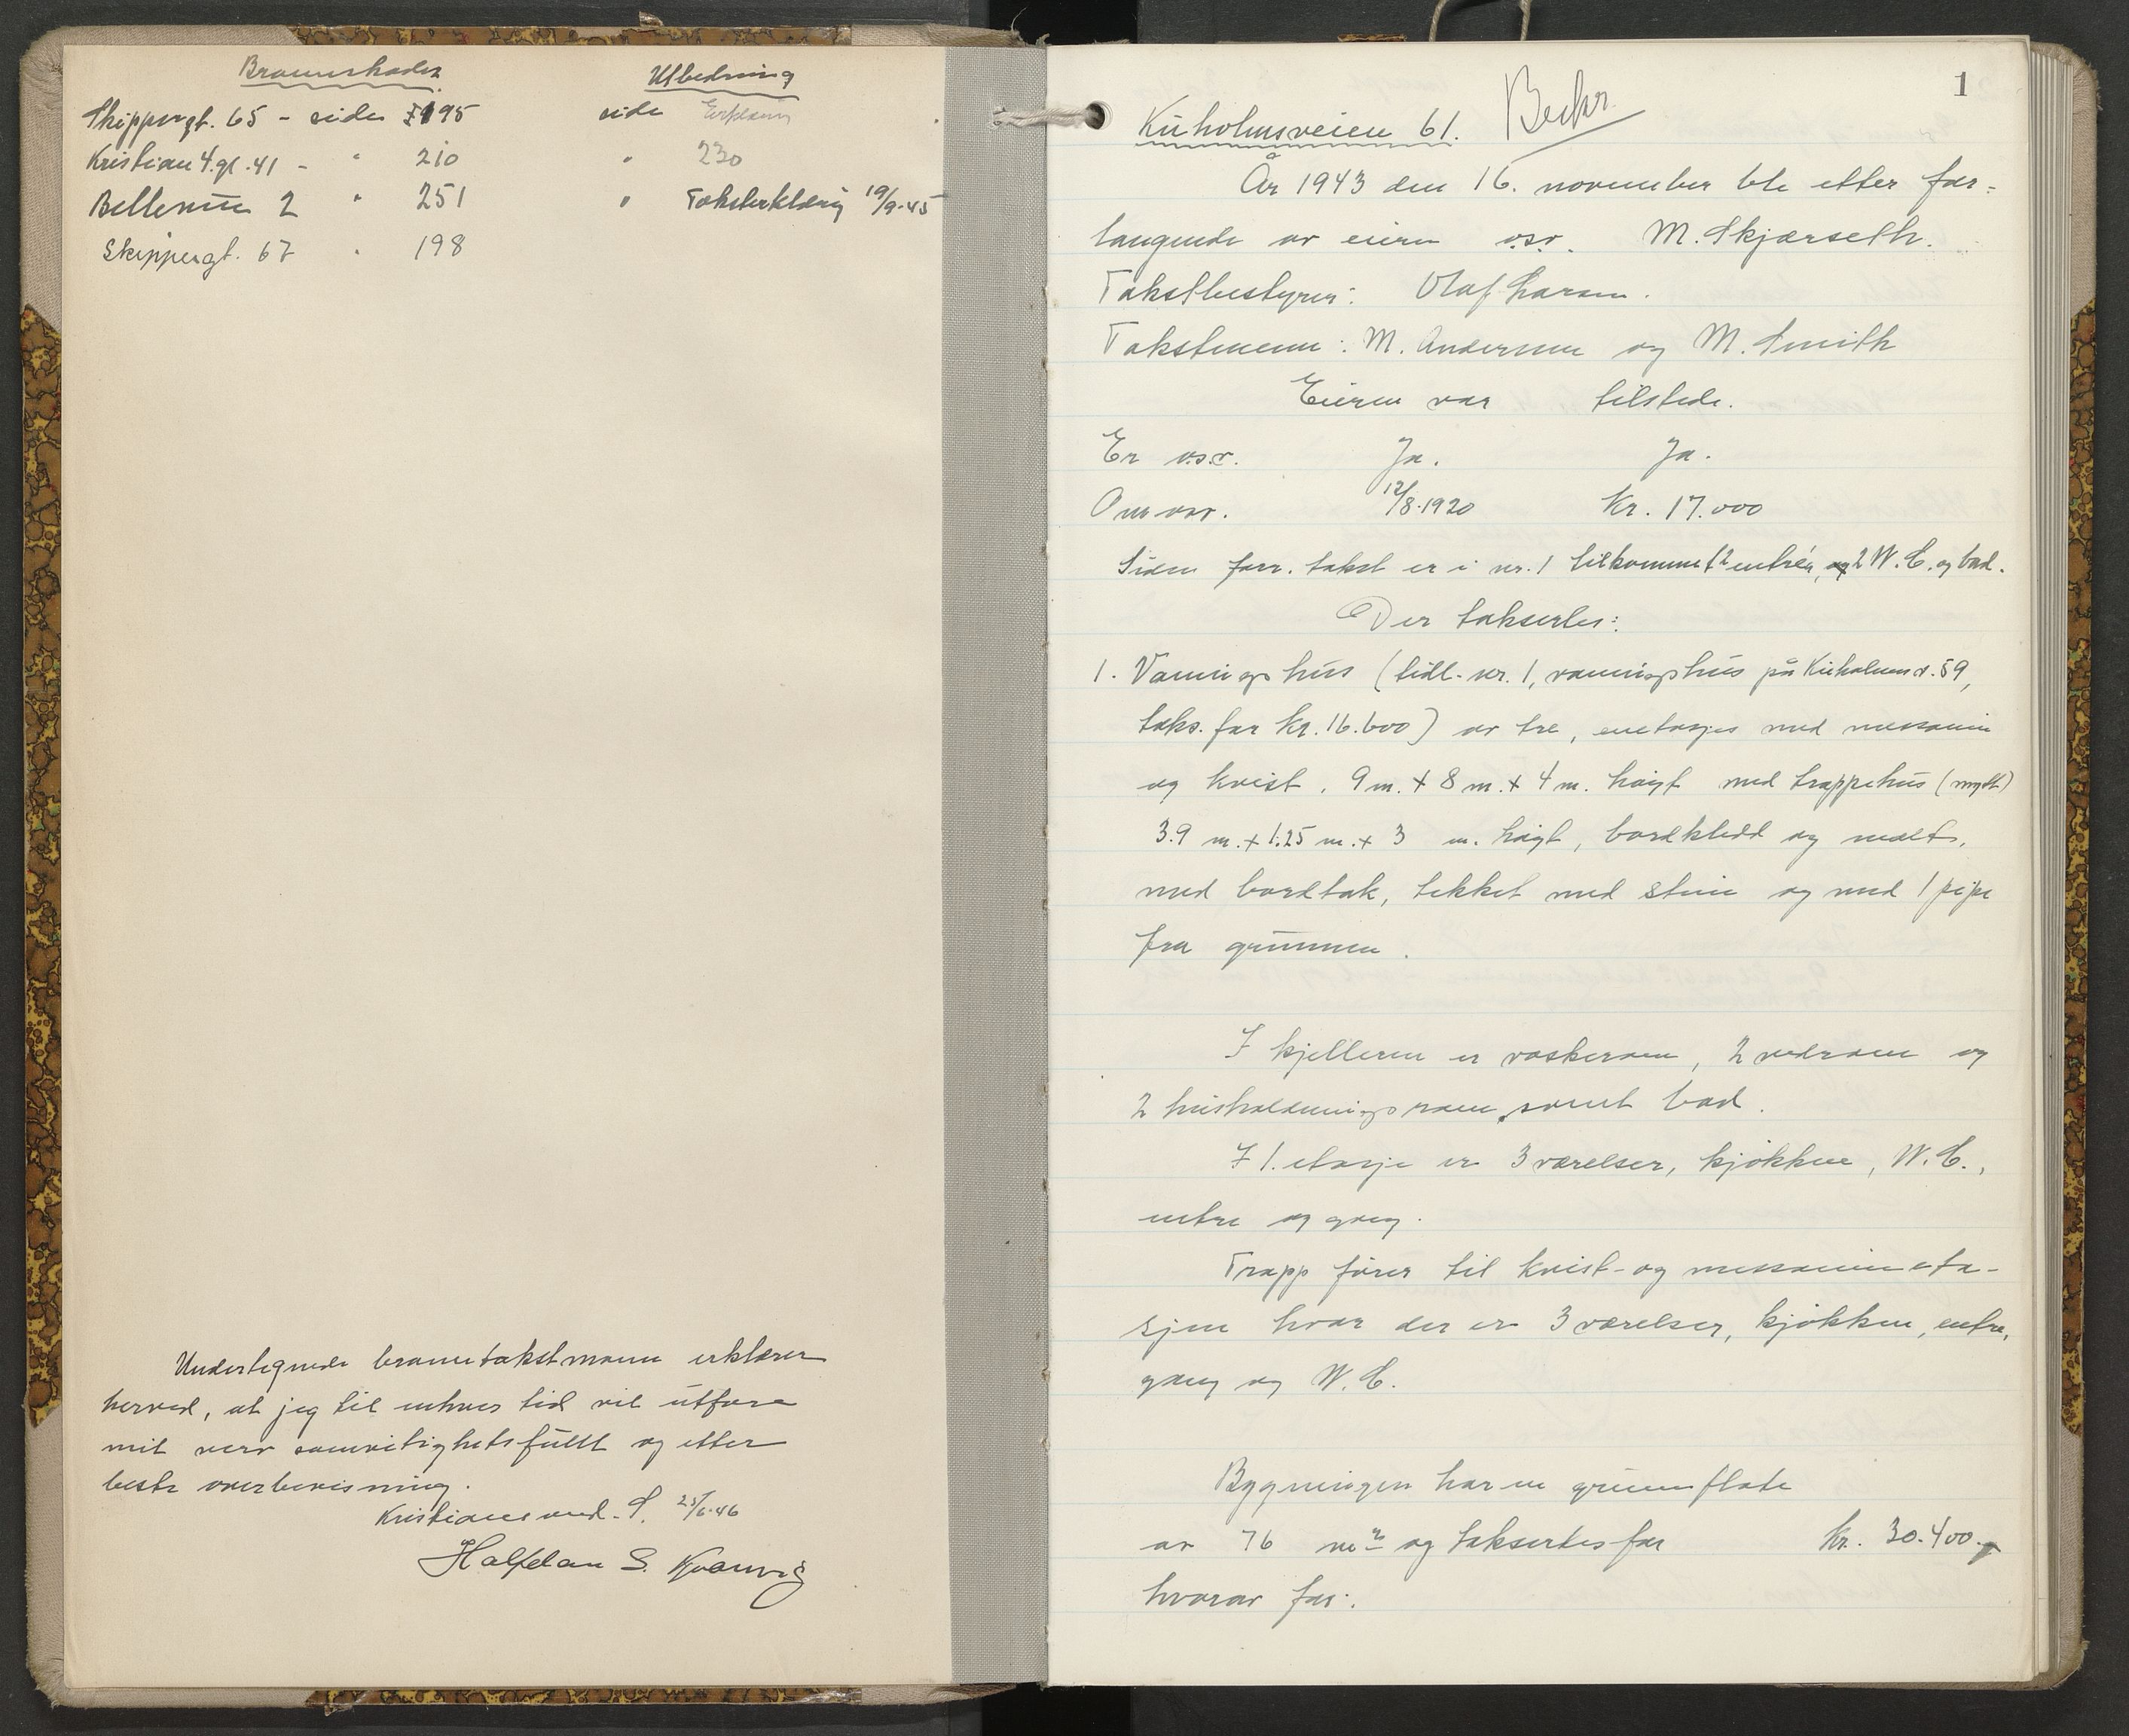 Brannskader. Utbedring
Skippergt. 65 - side 195 side
Kristian 4. gt. 41 - " 210 " 230
Bellevue 2 " 251 " Taksterklæring 19/9-45
Skippergt. 67 " 198
Undertegnede branntakstmann erklærer
herved, at jeg til enhver tid vil utføre
mit verv samvitighetsfullt og etter
beste overbevisning.
Kristiansand. S. 25/6-46
Halfdan S.
1
Kuholmsveien 61. Bekr
År 1943 den 16. november ble etter for=
langende av eieren o.s.v. M. Skjærseth.
Takstbestyrer: Olaf Larsen.
Takstmenn: M. Andersen og M. Smith
Eieren var tilstede.
Er o.s.v. Ja. Ja.
Om var. 12/8-1920 Kr. 17.000
Siden forr. takst er i nr. 1 tilkommet 2 entréer, 2 W.C. og bad.
Der takserles:
1. Vaaningshus (tidl. nr. 1, vaaningshus på Kuholmsv. 59,
taks. for kr. 16.600) av tre, enetasjes med messanin
og kvist. 9 m. + 8 m. + 4 m. høigt med trappehus (nytt)
3.9 m. + 1.25 m. + 3 m. høigt, bordkledd og malt,
med bordtak, tekket med stein og med 1 pipe
fra grunnen.
I kjelleren er vaskerom, 2 vedrom og
2 husholdningsrom, samt bad.
I 1. etasje er 3 værelser, kjøkken, W.C.,
entre og gang.
Trapp fører til kvist- og messanineta-
sjen hvor der er 3 værelser, kjøkken, entre,
gang og W.C.
Bygningen har en grunnflate
av 76 m² og taksertes for kr. 30.400.-
hvorav for: